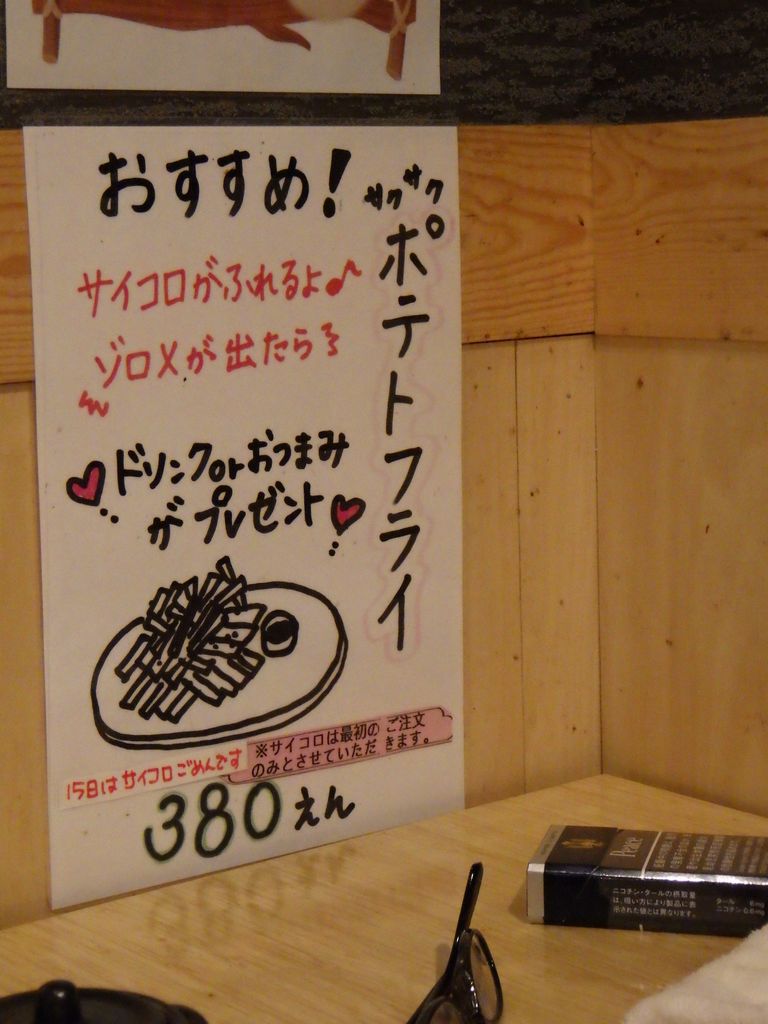 おすすめ！
サクサク
ポテトフライ
サイコロがふれるよ♪
ゾロメが出たらろ
ドリンクorおつまみ
がプレゼント
※サイコロは最初のご注文
のみとさせていただきます。
15日はサイコロごめんです
380えん
Peace
ニコチン・タールの摂取量
は、吸い方により製品に表
示された値とは異なります。
タール 6mg
ニコチン 0.6mg